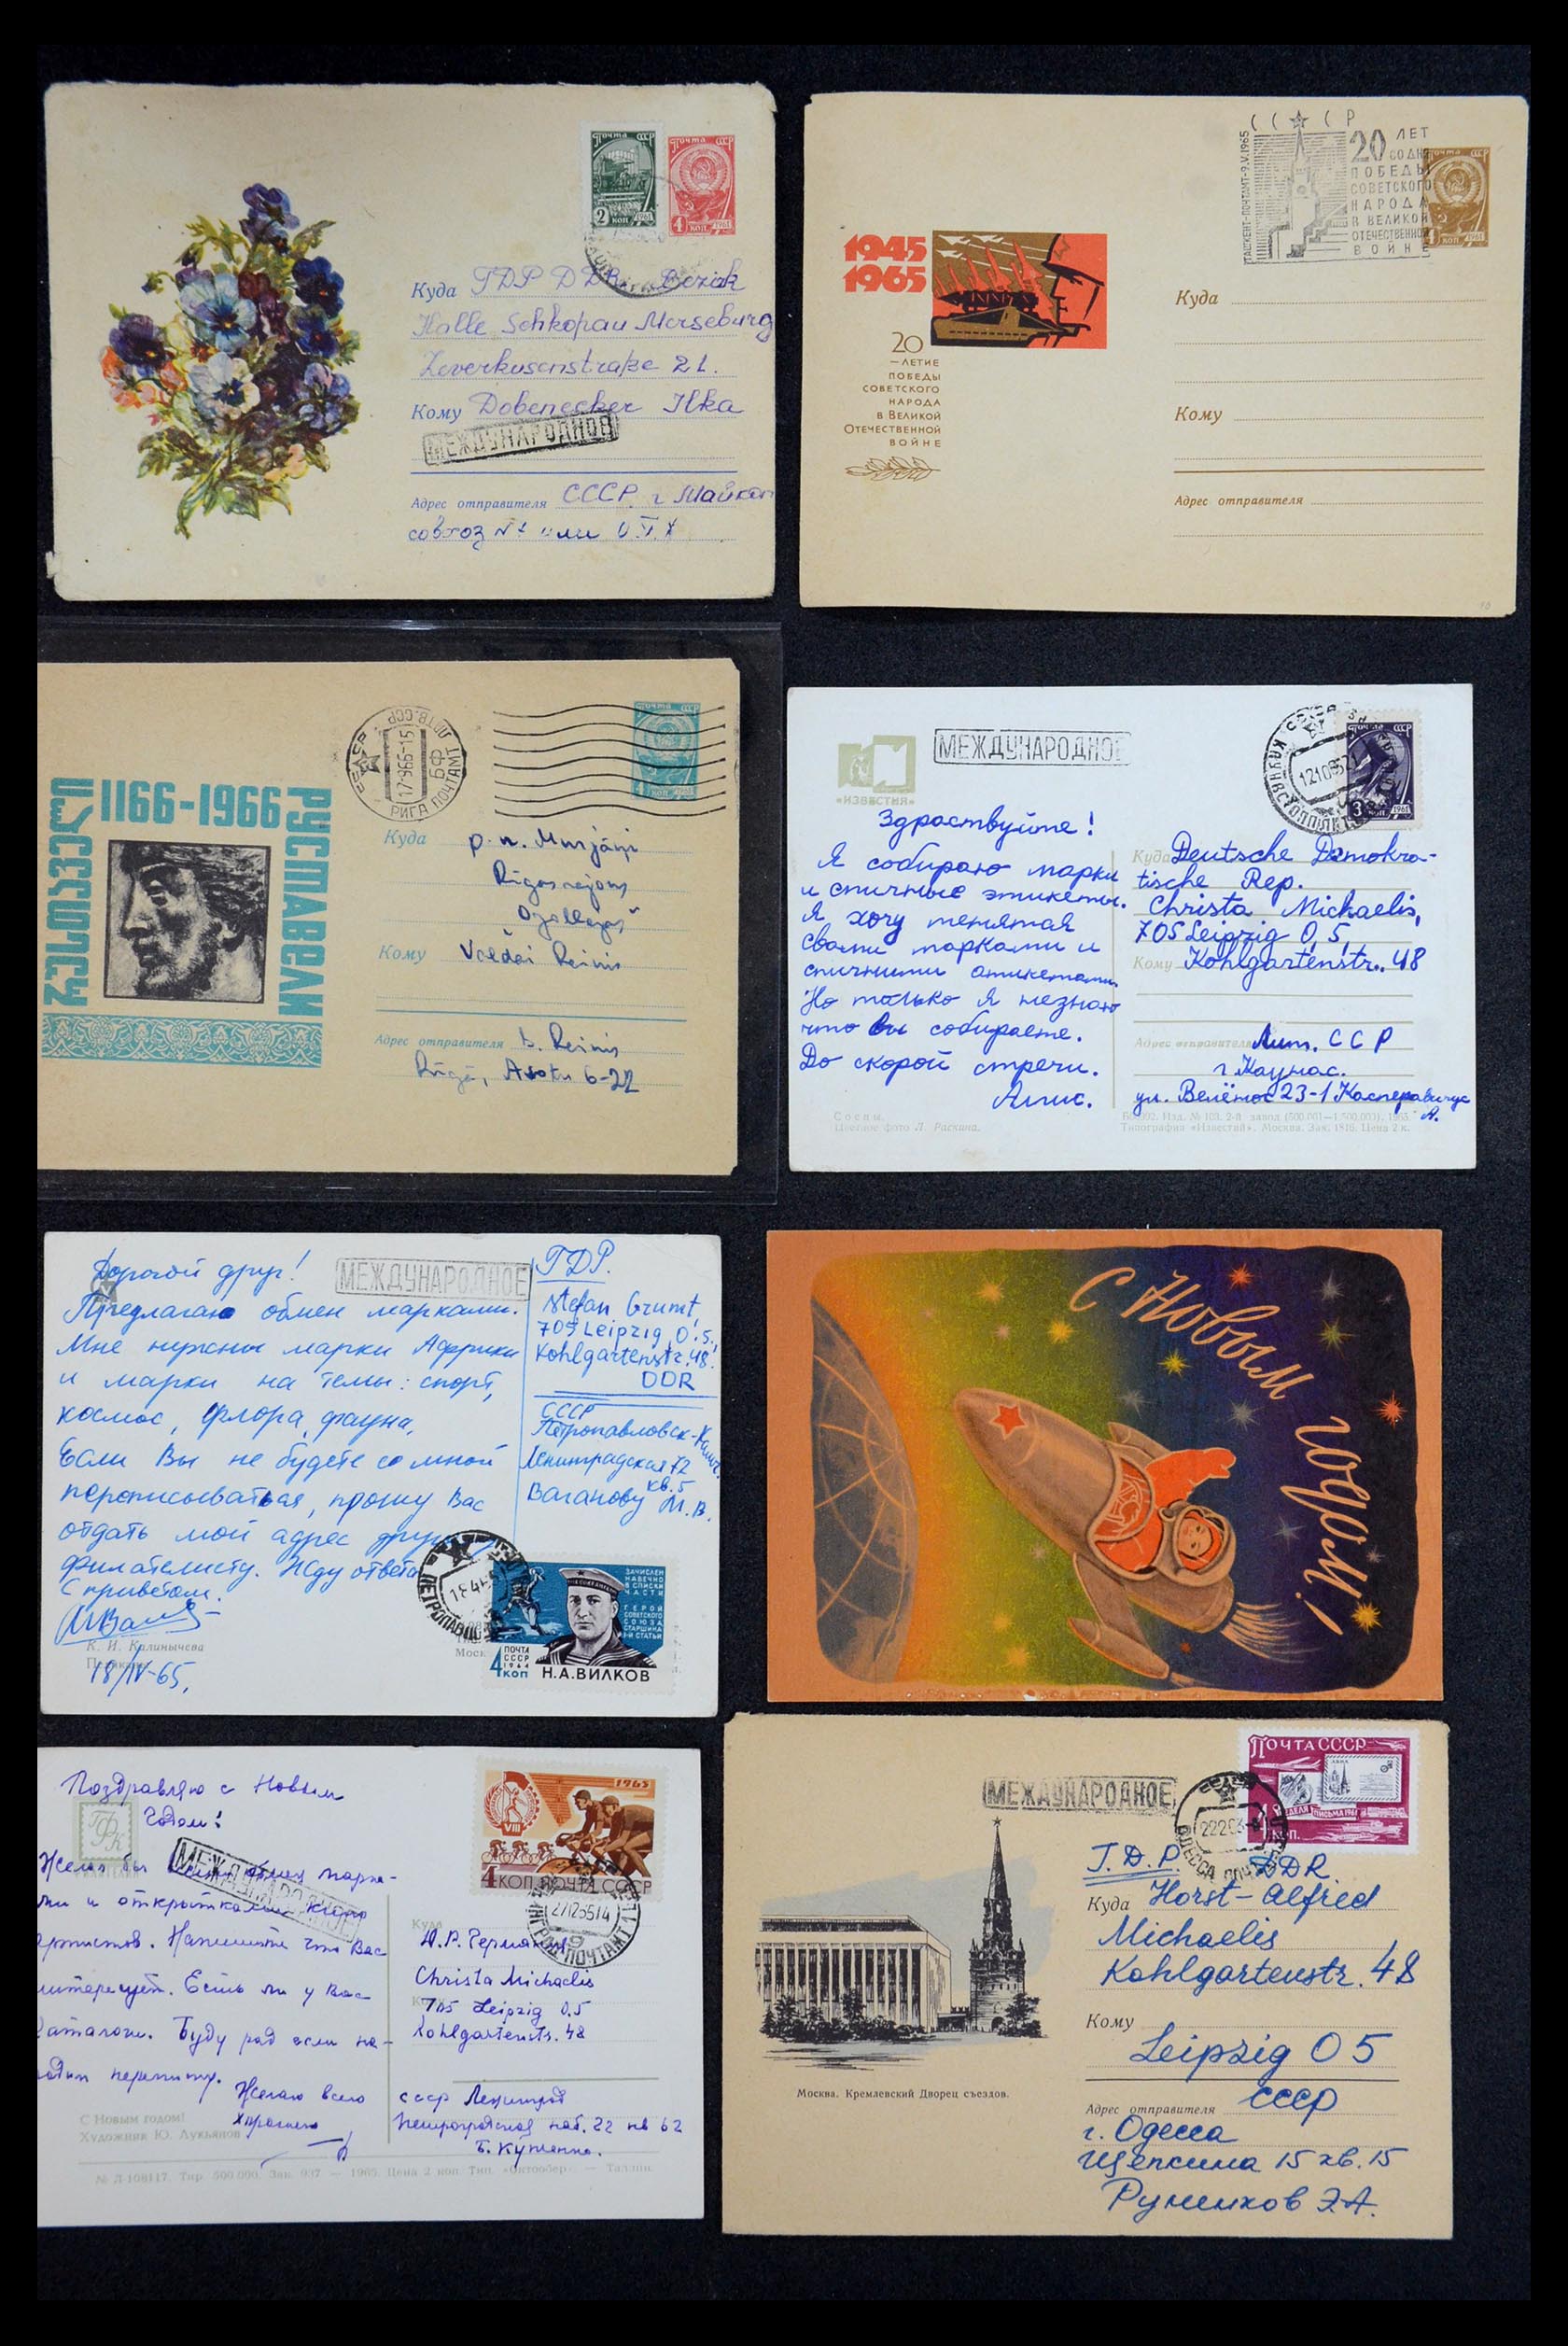 Почта СССР
2 коп 1961
Почта СССР
4 коп 1961
Куда ГДР DDR Bezirk
Halle Schkopau Merseburg
Leverkusenstraße 21.
Кому Dobenecker Ilka
МЕЖДУНАРОДНОЕ
Адрес отправителя СССР г Майкоп
совхоз №1
СССР
ТАШКЕНТ-ПОЧТАМТ-9.V.1965
20 ЛЕТ
СО ДНЯ
ПОБЕДЫ
СОВЕТСКОГО
НАРОДА
В ВЕЛИКОЙ
ОТЕЧЕСТВЕННОЙ
ВОЙНЕ
4 коп 1961
1945
1965
20
—ЛЕТИЕ
ПОБЕДЫ
СОВЕТСКОГО
НАРОДА
В ВЕЛИКОЙ
ОТЕЧЕСТВЕННОЙ
ВОЙНЕ
Куда
Кому
Адрес отправителя
რუსთაველი
1166-1966
РУСТАВЕЛИ
РИГА ПОЧТАМТ
Почта СССР
Куда p. n. Murjāņi
Rīgas rajons
Кому Valdai Reinis
Адрес отправителя b. Reinis
Rīgā, 6-22
«ИЗВЕСТИЯ»
МЕЖДУНАРОДНОЕ
Почта СССР
3 коп 1961
Здраствуйте!
Я собираю марки
и спичные этикеты.
Я хочу менятая
своими марками и
спичними етикетами.
Но только я незнаю
что вы собираете.
До скорой стречи.
Куда Deutsche Demokra-
tische Rep.
Christa Michaelis,
705 Leipzig 0,5,
Кому Kohlgartenstr. 48
Адрес отправителя Лит. ССР
г. Каунас.
ул. 23-1 Касперавичус
А.
Сосны.
Цветное фото Л. Раскина.
Изд. № 103. 2-й завод (500.001—1.500.000). 1963.
Типография «Известий». Москва. Зак. 1816. Цена 2 к.
Дорогой друг!
Предлагаю обмен марками.
Мне нужны марки Африки
и марки на темы: спорт,
космос, флора, фауна,
Если Вы не будете со мной
переписываться, прошу Вас
отдать мой адрес другу
филателисту. Жду ответа
С приветом.
К. И. Калинычева
18/IV-65.
МЕЖДУНАРОДНОЕ
ГДР.
Stefan Grumt,
705 Leipzig, O.5.,
Kohlgartenstr. 48.
DDR
СССР
Петропавловск-Камч.
Ленинградская 72
кв. 5
Ваганову М.В.
ЗАЧИСЛЕН
НАВЕЧНО
В СПИСКИ
ЧАСТИ
ГЕРОЙ
СОВЕТСКОГО
СОЮЗА
СТАРШИНА
СТАТЬИ
ПОЧТА
СССР
1964
4 коп
Н.А.ВИЛКОВ
С Новым годом!
Поздравляю с Новым
Годом!
ГФК
МЕЖДУНАРОДНОЕ
ми и открытками кино
артистов. Напишите что Вас
интересует. Есть ли у Вас
каталоги. Буду рад если на-
ладим переписку.
Желаю всего
хорошего
С Новым годом!
Художник Ю. Лукьянов
1965
VIII
4 КОП. ПОЧТА СССР
Куда
Christa Michaelis
705 Leipzig 0.5
Kohlgartenstr. 48
СССР Ленинград
Петроградская наб. 22 кв 62
№ Л-108117. Тир. 500.000. Зак. 937 — 1965. Цена 2 коп. Тип. «Октообер» — Таллин.
МЕЖДУНАРОДНОЕ
ПОЧТА СССР
НЕДЕЛЯ ПИСЬМА 1961
4 КОП.
Г.Д.Р. DDR
Куда Horst-Alfred
Michaelis
Kohlgartenstr. 48
Кому
Leipzig 05
Москва. Кремлевский Дворец съездов.
Адрес отправителя СССР
г. Одесса
Щепкина 15 кв. 15